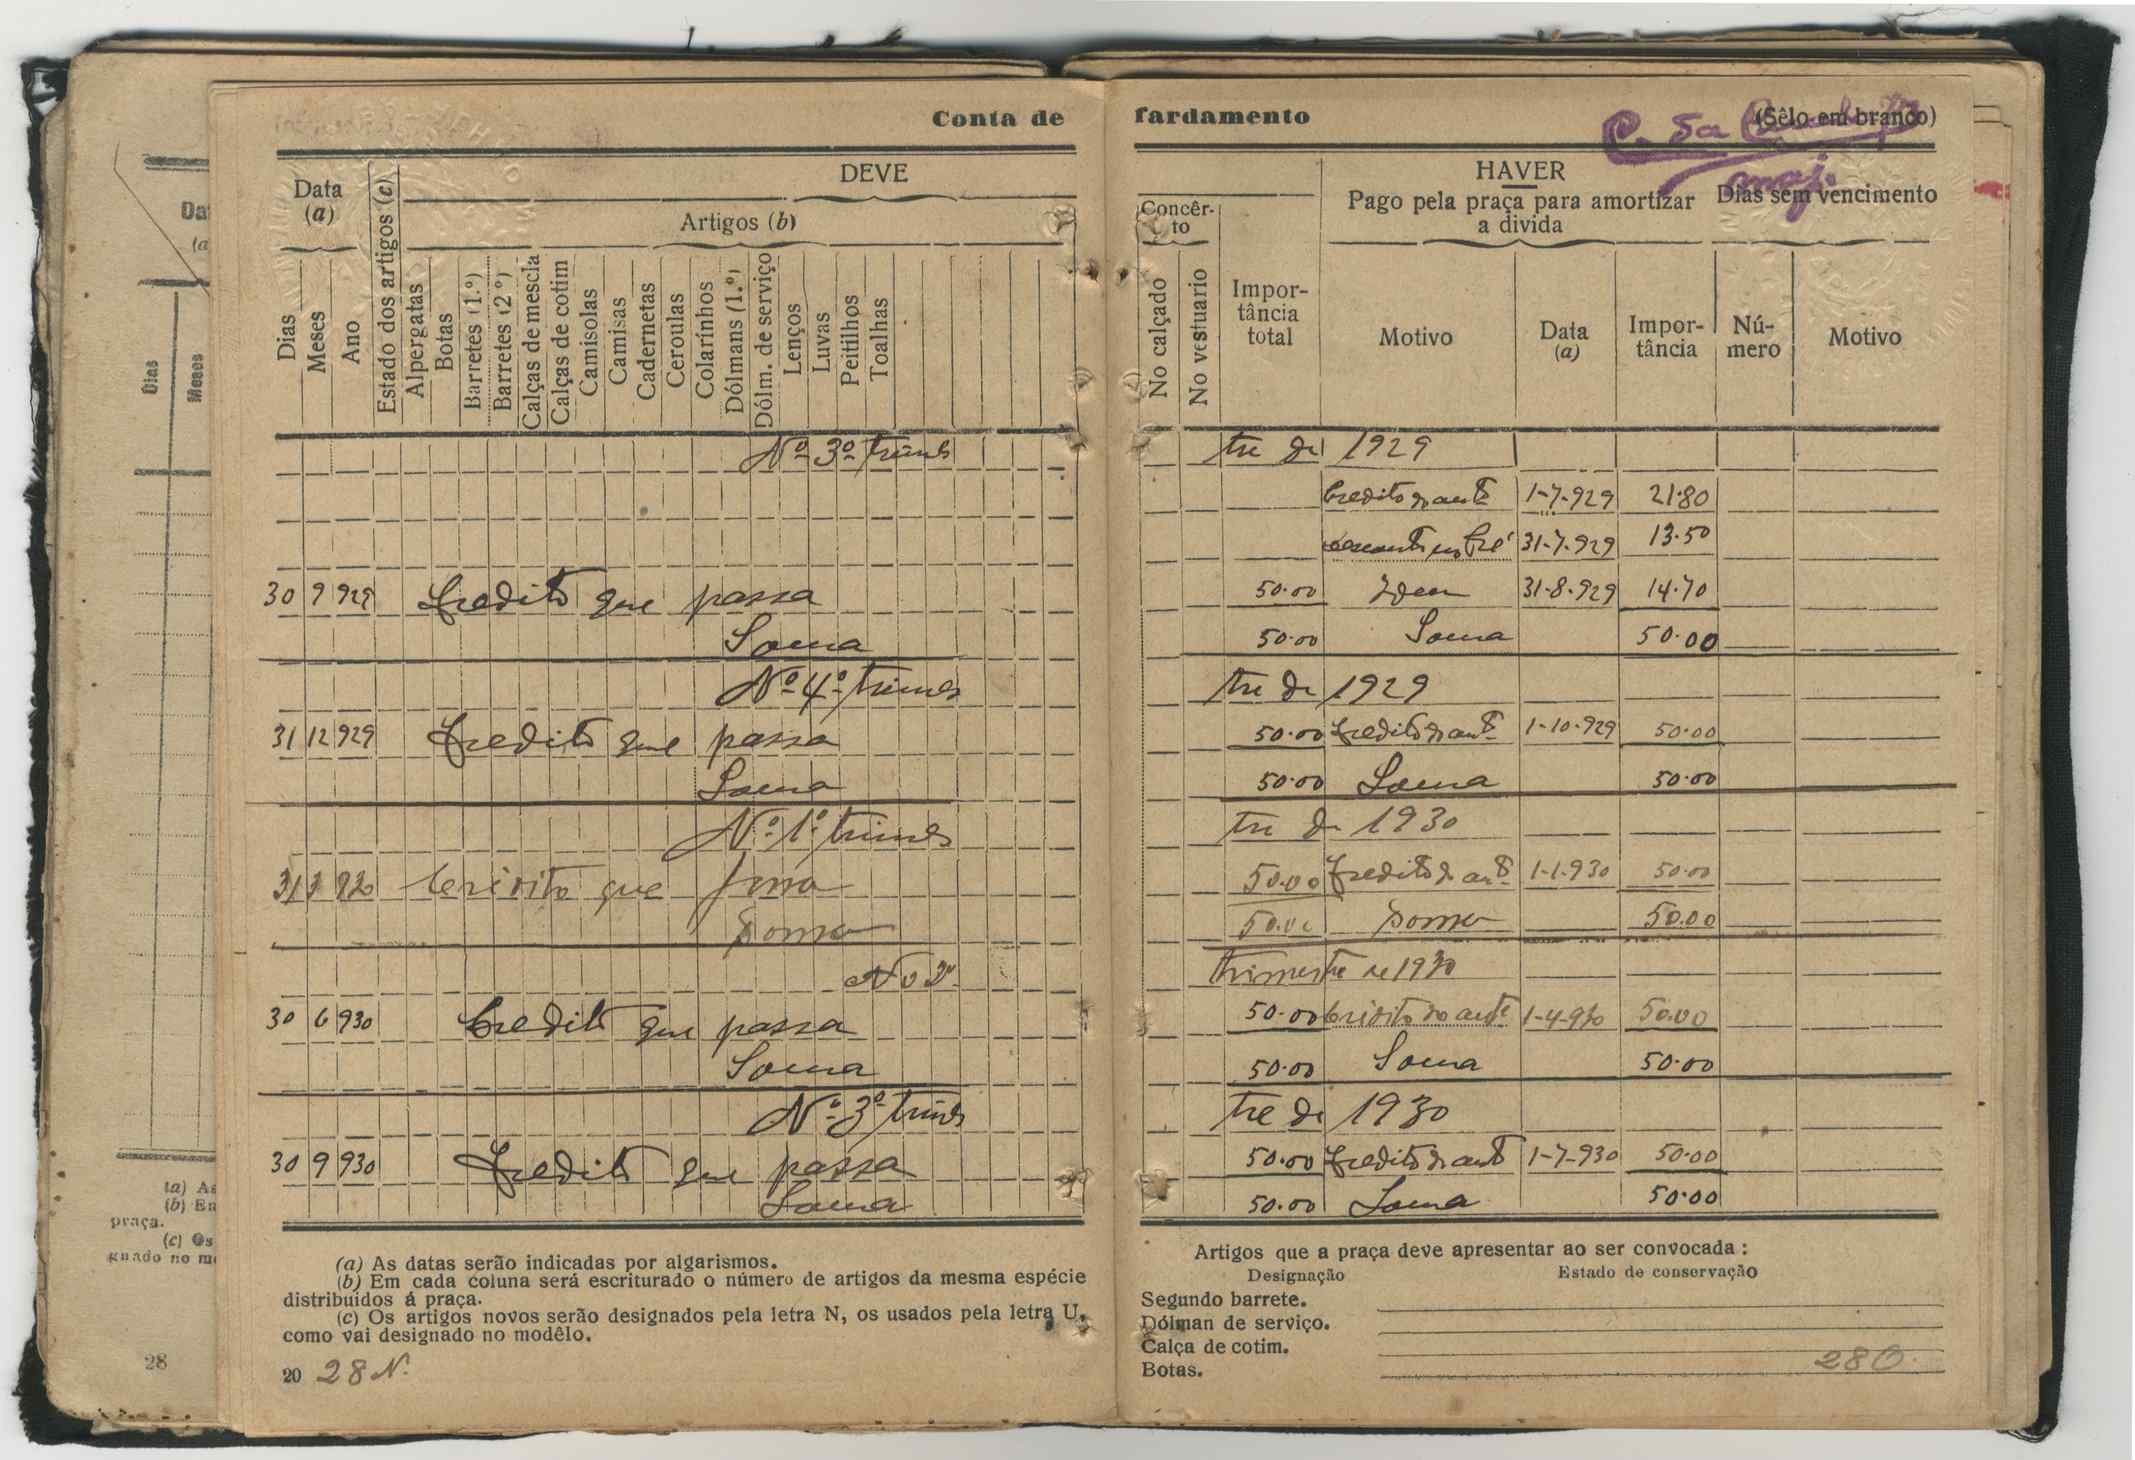 Conta de fardamento (Sêlo em branco)
maj.
DEVE
HAVER
Data (a)
Estado dos artigos (c)
Artigos (b)
Concêrto
Pago pela praça para amortizar a divida
Dias sem vencimento
Dias Meses Ano Alpergatas Botas Barretes (1.º) Barretes (2.º) Calças de mescla Calças de cotim Camisolas Camisas Cadernetas Ceroulas Colarínhos Dólmans (1.º) Dólm. de serviço Lenços Luvas Peitilhos Toalhas
No calçado No vestuario Importância total Motivo Data (a) Importância Número Motivo
No 3º trimestre de 1929
Credito do antº 1-7-929 21.80
31-7-929 13.50
30 9 929 Credito que passa 50.00 Idem 31-8-929 14.70
Soma 50.00 Soma 50.00
No 4º trimestre de 1929
31 12 929 Credito que passa 50.00 Credito do antº 1-10-929 50.00
Soma 50.00 Soma 50.00
No 1º trimestre de 1930
31 3 930 Credito que passa 50.00 Credito do antº 1-1-930 50.00
Soma 50.00 Soma 50.00
No 2º trimestre de 1930
30 6 930 Credito que passa 50.00 Credito do antº 1-4-930 50.00
Soma 50.00 Soma 50.00
No 3º trimestre de 1930
30 9 930 Credito que passa 50.00 Credito do antº 1-7-930 50.00
Soma 50.00 Soma 50.00
(a) As datas serão indicadas por algarismos.
(b) Em cada coluna será escriturado o número de artigos da mesma espécie
distribuídos á praça.
(c) Os artigos novos serão designados pela letra N, os usados pela letra U,
como vai designado no modêlo.
20 28 N.
Artigos que a praça deve apresentar ao ser convocada:
Designação Estado de conservação
Segundo barrete.
Dólman de serviço.
Calça de cotim.
Botas.
28 O.
Dias
Meses
(a) As
(b) Em
praça.
(c) Os
gnado no mo
28